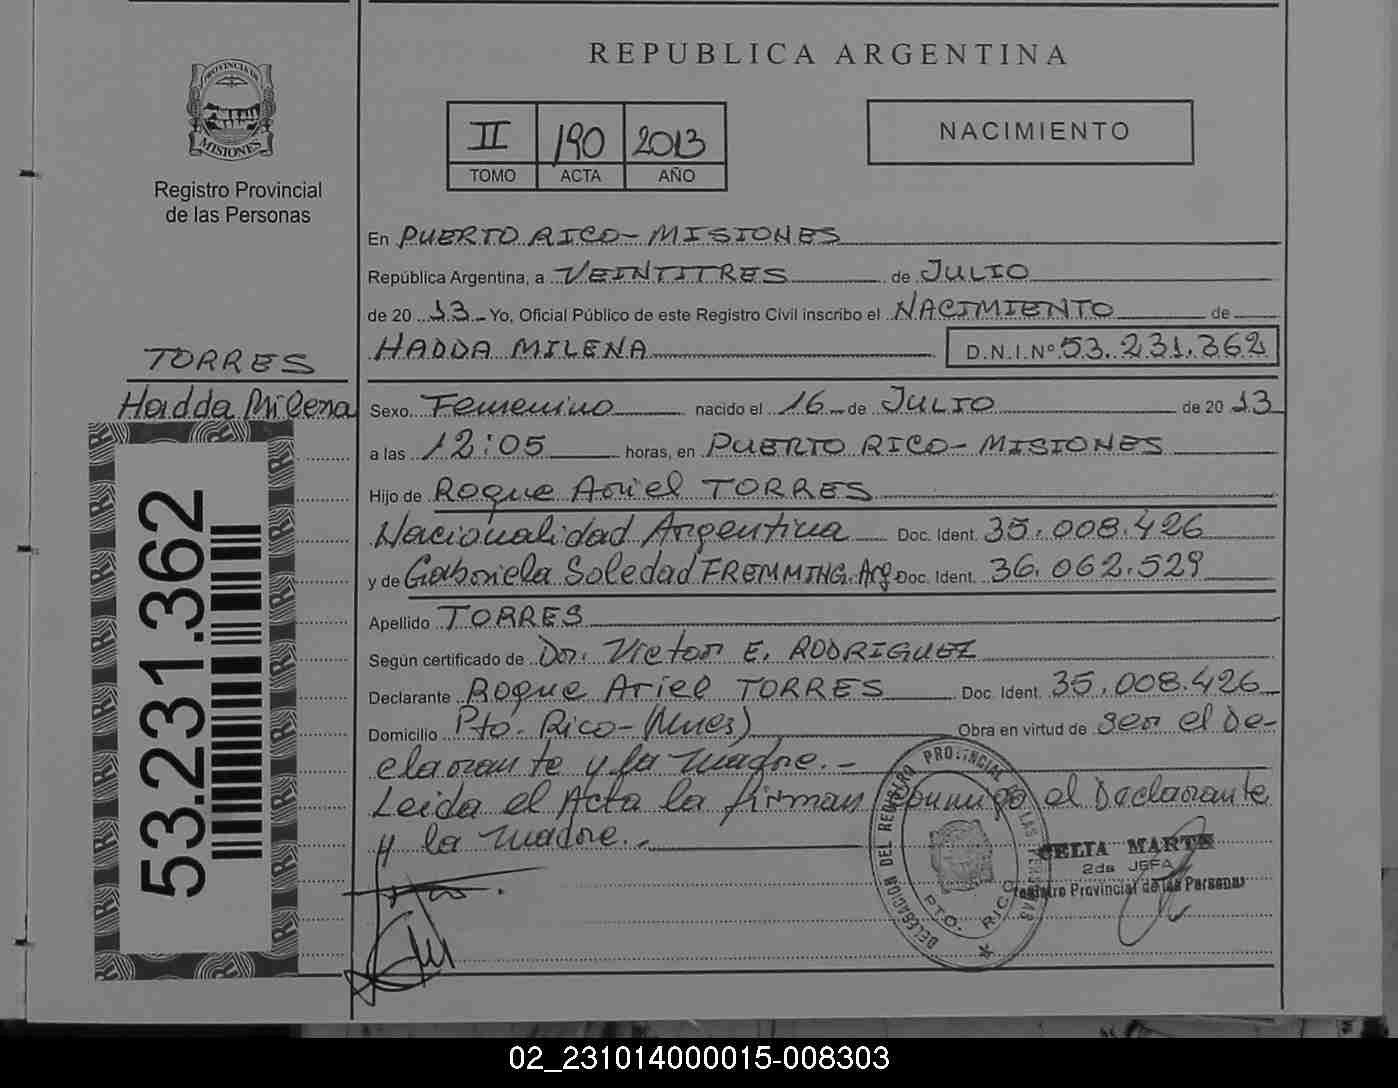 REPUBLICA ARGENTINA
PROVINCIA DE
MISIONES
Registro Provincial
de las Personas
II 190 2013
TOMO ACTA AÑO
NACIMIENTO
En PUERTO RICO - MISIONES
República Argentina, a VEINTITRES de JULIO
de 20 13 Yo, Oficial Público de este Registro Civil inscribo el NACIMIENTO de
HADDA MILENA D.N.I.Nº 53.231.362
TORRES
Hadda Milena
Sexo Femenino nacido el 16 de JULIO de 20 13
a las 12:05 horas, en PUERTO RICO - MISIONES
Hijo de Roque Ariel TORRES
Nacionalidad Argentina Doc. Ident. 35.008.426
y de Gabriela Soledad FREMMING. Arg Doc. Ident. 36.062.529
Apellido TORRES
Según certificado de Dr. Victor E. RODRIGUEZ
Declarante Roque Ariel TORRES Doc. Ident. 35.008.426
Domicilio Pto. Rico - (Mnes) Obra en virtud de ser el De-
clarante y la madre. -
Leida el Acta la firman conmigo el Declarante
y la madre. -
53.231.362
DELEGACION DEL REGISTRO PROVINCIAL DE LAS PERSONAS
PTO. RICO
CELIA MARTA
2da JEFA
Registro Provincial de las Personas
02_231014000015-008303